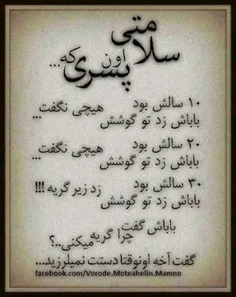 سلامتی
اون پسری که...
۱۰ سالش بود
باباش زد تو گوشش هیچی نگفت...
۲۰ سالش بود
باباش زد تو گوشش هیچی نگفت...
۳۰ سالش بود
باباش زد تو گوشش زد زیر گریه !!!
باباش گفت
چرا گریه میکنی..؟
گفت آخه اونوقتا دستت نمیلرزید...
facebook.com/Vorode.Moteahelin.Mamno